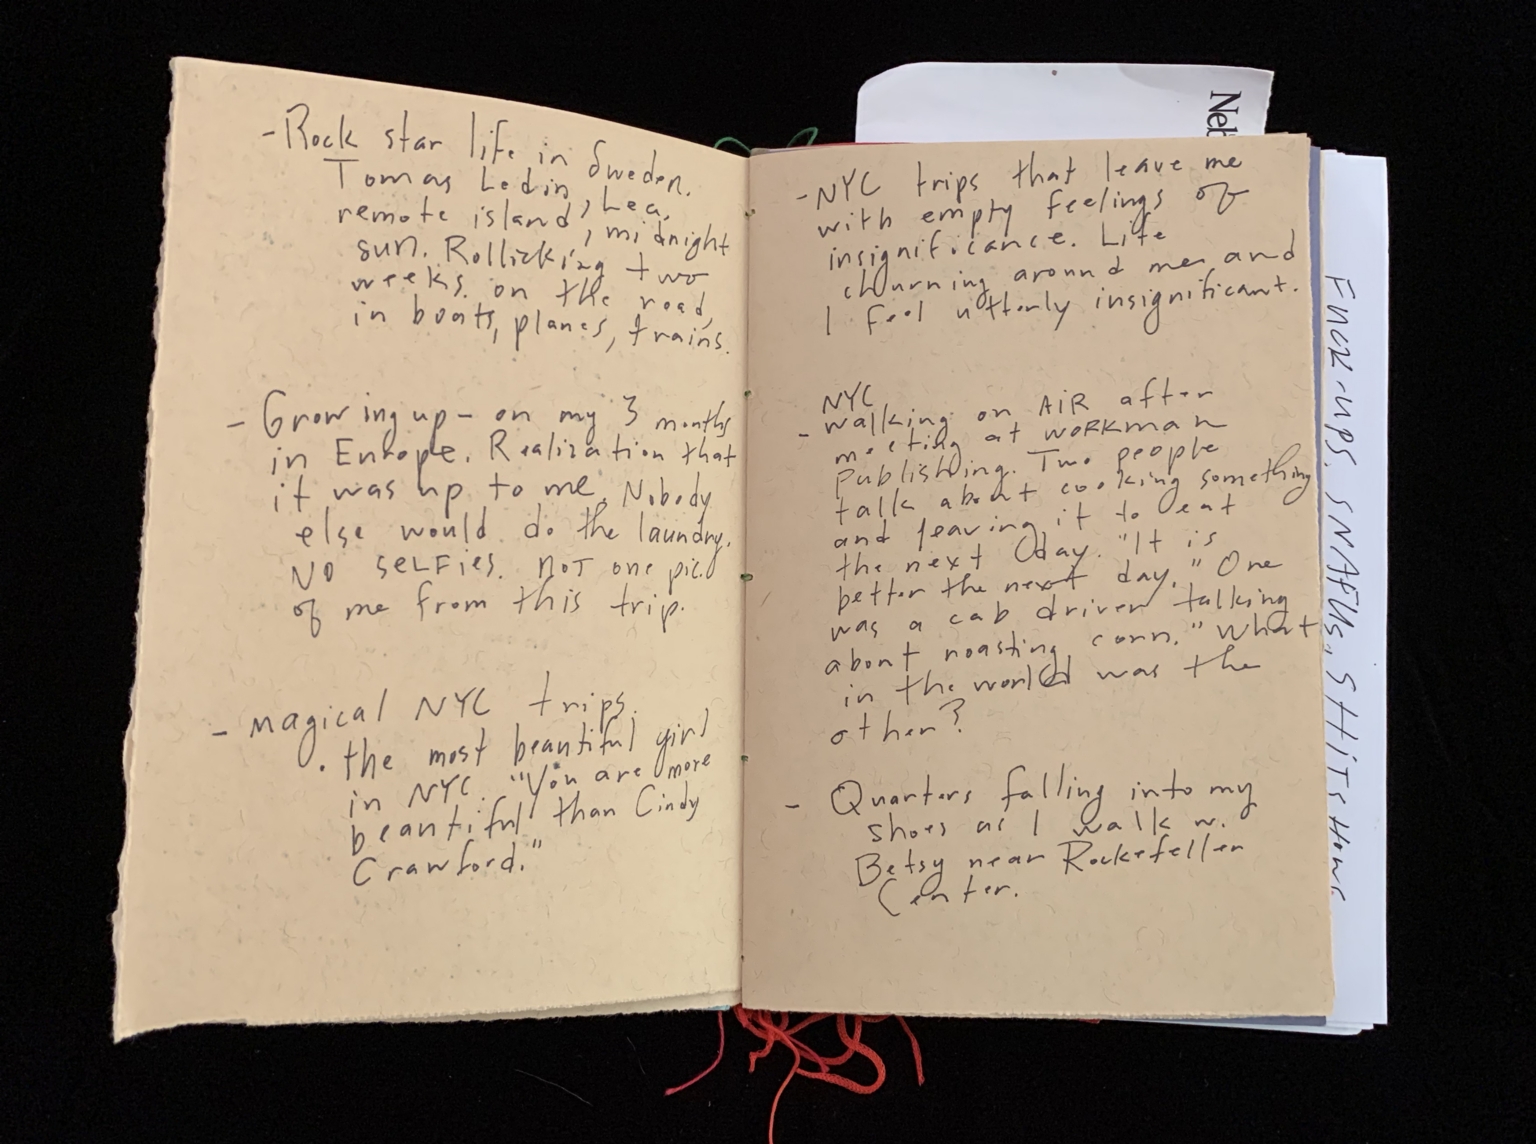 - Rock star life in Sweden.
Tomas Ledin, Lea,
remote island, midnight
sun. Rollicking two
weeks on the road,
in boats, planes, trains.
- Growing up - on my 3 months
in Europe. Realization that
it was up to me. Nobody
else would do the laundry.
NO SELFIES. NOT one pic
of me from this trip.
- Magical NYC trips.
. the most beautiful girl
in NYC. "You are more
beautiful than Cindy
Crawford."
- NYC trips that leave me
with empty feelings of
insignificance. Life
churning around me and
I feel utterly insignificant.
NYC
- walking on AIR after
meeting at WORKMAN
Publishing. Two people
talk about cooking something
and leaving it to eat
the next day. "It is
better the next day." One
was a cab driver talking
about roasting corn." What
in the world was the
other?
- Quarters falling into my
shoes as I walk w.
Betsy near Rockefeller
Center.
Neb
FUCK-UPS, SNAFUS, SHITSHOWS